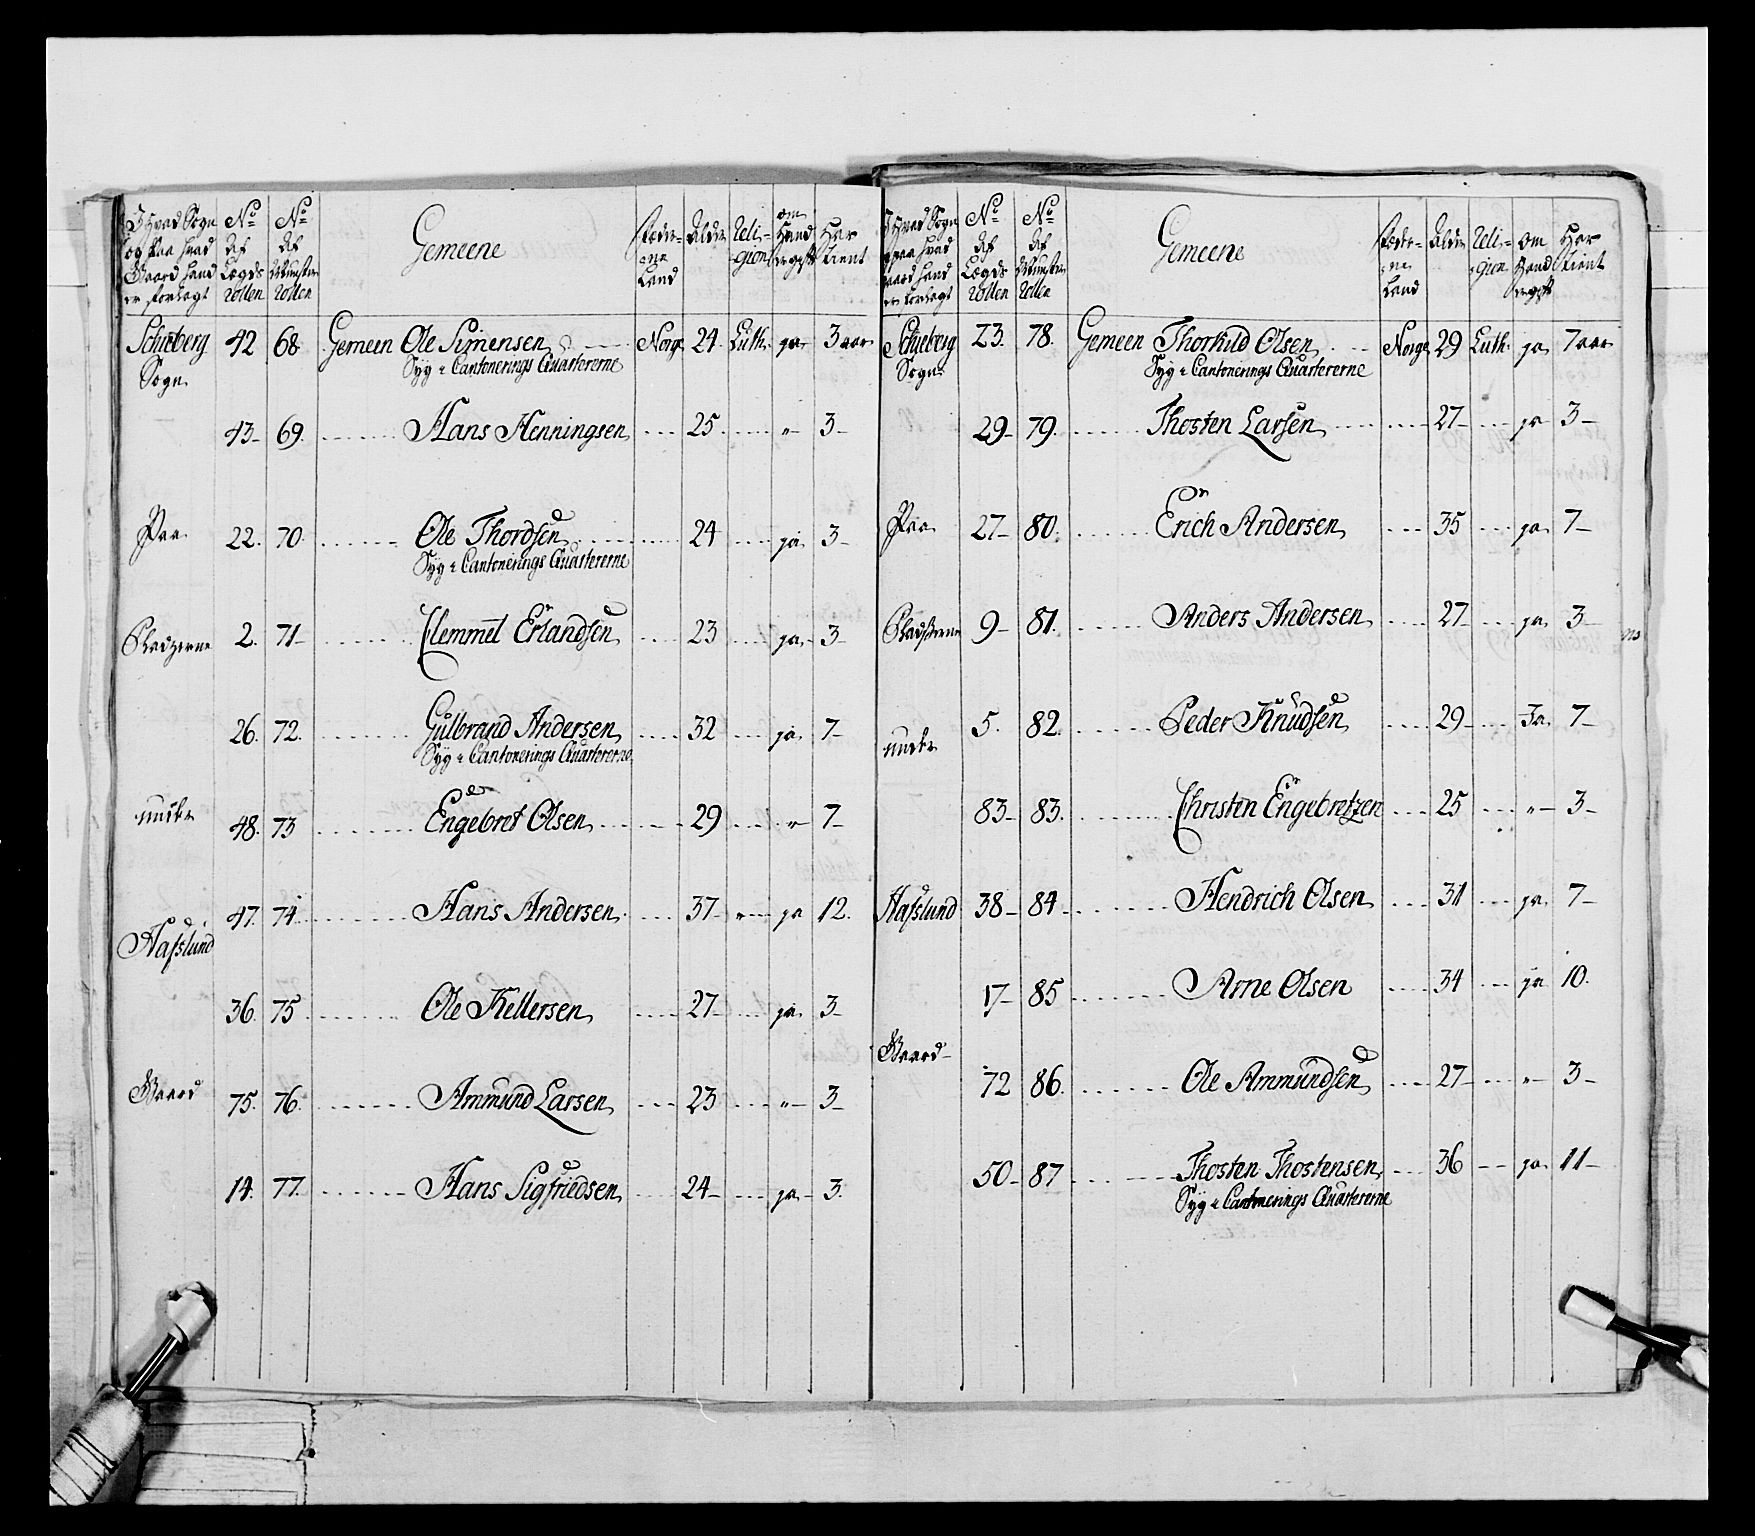 I Hvad Sogn og paa hvad Gaard hand er forlagt | No. af Lægds Rollen | No. af Mynster Rollen | Gemeene | Føderne Land | Alder | Religion | om Hand er gift | Har tient
Schieberg Sogn | 42 | 68. | Gemeen Ole Simensen | Norge | 24. | Luth. | ja | 3 aar
Syg i Cantonerings Quartererne
43 | 69. | Hans Henningsen | 25 | „ | 3
Paa | 22. | 70. | Ole Thordsen | 24 | ja | 3
Syg i Cantonerings Quartererne
Pladzerne | 2. | 71 | Clemmet Erlandsen | 23 | ja | 3
26. | 72. | Gulbrand Andersen | 32 | ja | 7
Syg i Cantonerings Quartererne
under | 48. | 73 | Engebret Olsen | 29 | „ | 7
Hafslund | 47. | 74. | Hans Andersen | 37 | ja | 12.
36. | 75. | Ole Kettersen | 27 | ja | 3
Gaard | 75. | 76. | Ammund Larsen | 23 | „ | 3
14. | 77. | Hans Sigfriedsen | 24 | ja | 3.
I Hvad Sogn og paa hvad Gaard hand er forlagt | No. af Lægds Rollen | No. af Mynster Rollen | Gemeene | Føderne Land | Alder | Religion | om Hand er gift | Har tient
Schieberg Sogn | 23. | 78. | Gemeen Thorkild Olsen | Norge | 29 | Luth. | ja | 7 aar
Syg i Cantonerings Quartererne
29 | 79. | Thosten Larsen | 27 | ja | 3
Paa | 27 | 80. | Erich Andersen | 35 | ja | 7
Pladserne | 9 | 81. | Anders Andersen | 27 | ja | 3
under | 5. | 82. | Peder Knudsen | 29 | Ja | 7
83 | 83. | Christen Engebretzen | 25 | „ | 3
Hafslund | 38 | 84 | Hendrich Olsen | 31 | ja | 7
17 | 85 | Arne Olsen | 34 | ja | 10.
Gaard | 72 | 86. | Ole Ammundsen | 27 | „ | 3
50 | 87 | Thosten Thostensen | 36 | ja | 11
Syg i Cantonerings Quartererne